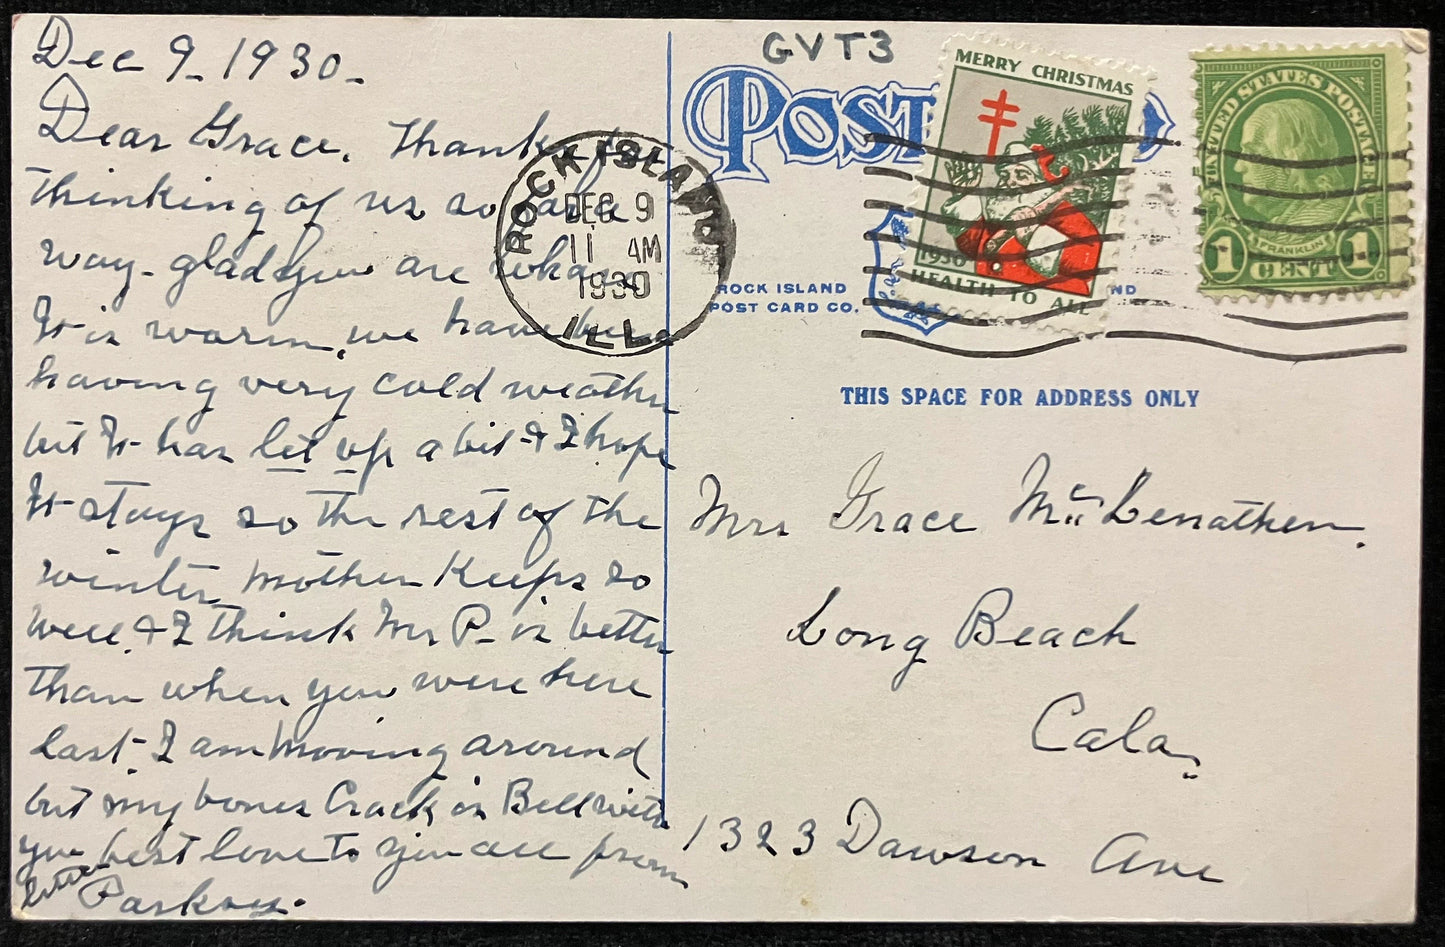 Dec 9 - 1930 -
Dear Grace. Thanks for
thinking of us so far a
way - glad you are where
It is warm, we have been
having very cold weather
but It has let up a bit - & I hope
It stays so the rest of the
winter, mother keeps so
well, & I think Mr P - is better
than when you were here
last - I am moving around
but my bones Crack is Bell with
you best love to you all from
Parkay.
GVT3
POST
ROCK ISLAND
POST CARD CO.
ND
ROCK ISLAND
DEC 9
11 AM
1930
ILL.
MERRY CHRISTMAS
1930
HEALTH TO ALL
UNITED STATES POSTAGE
FRANKLIN
1 CENT 1
THIS SPACE FOR ADDRESS ONLY
Mrs Grace McLenathen.
Long Beach
Cala.
1323 Dawson Ave